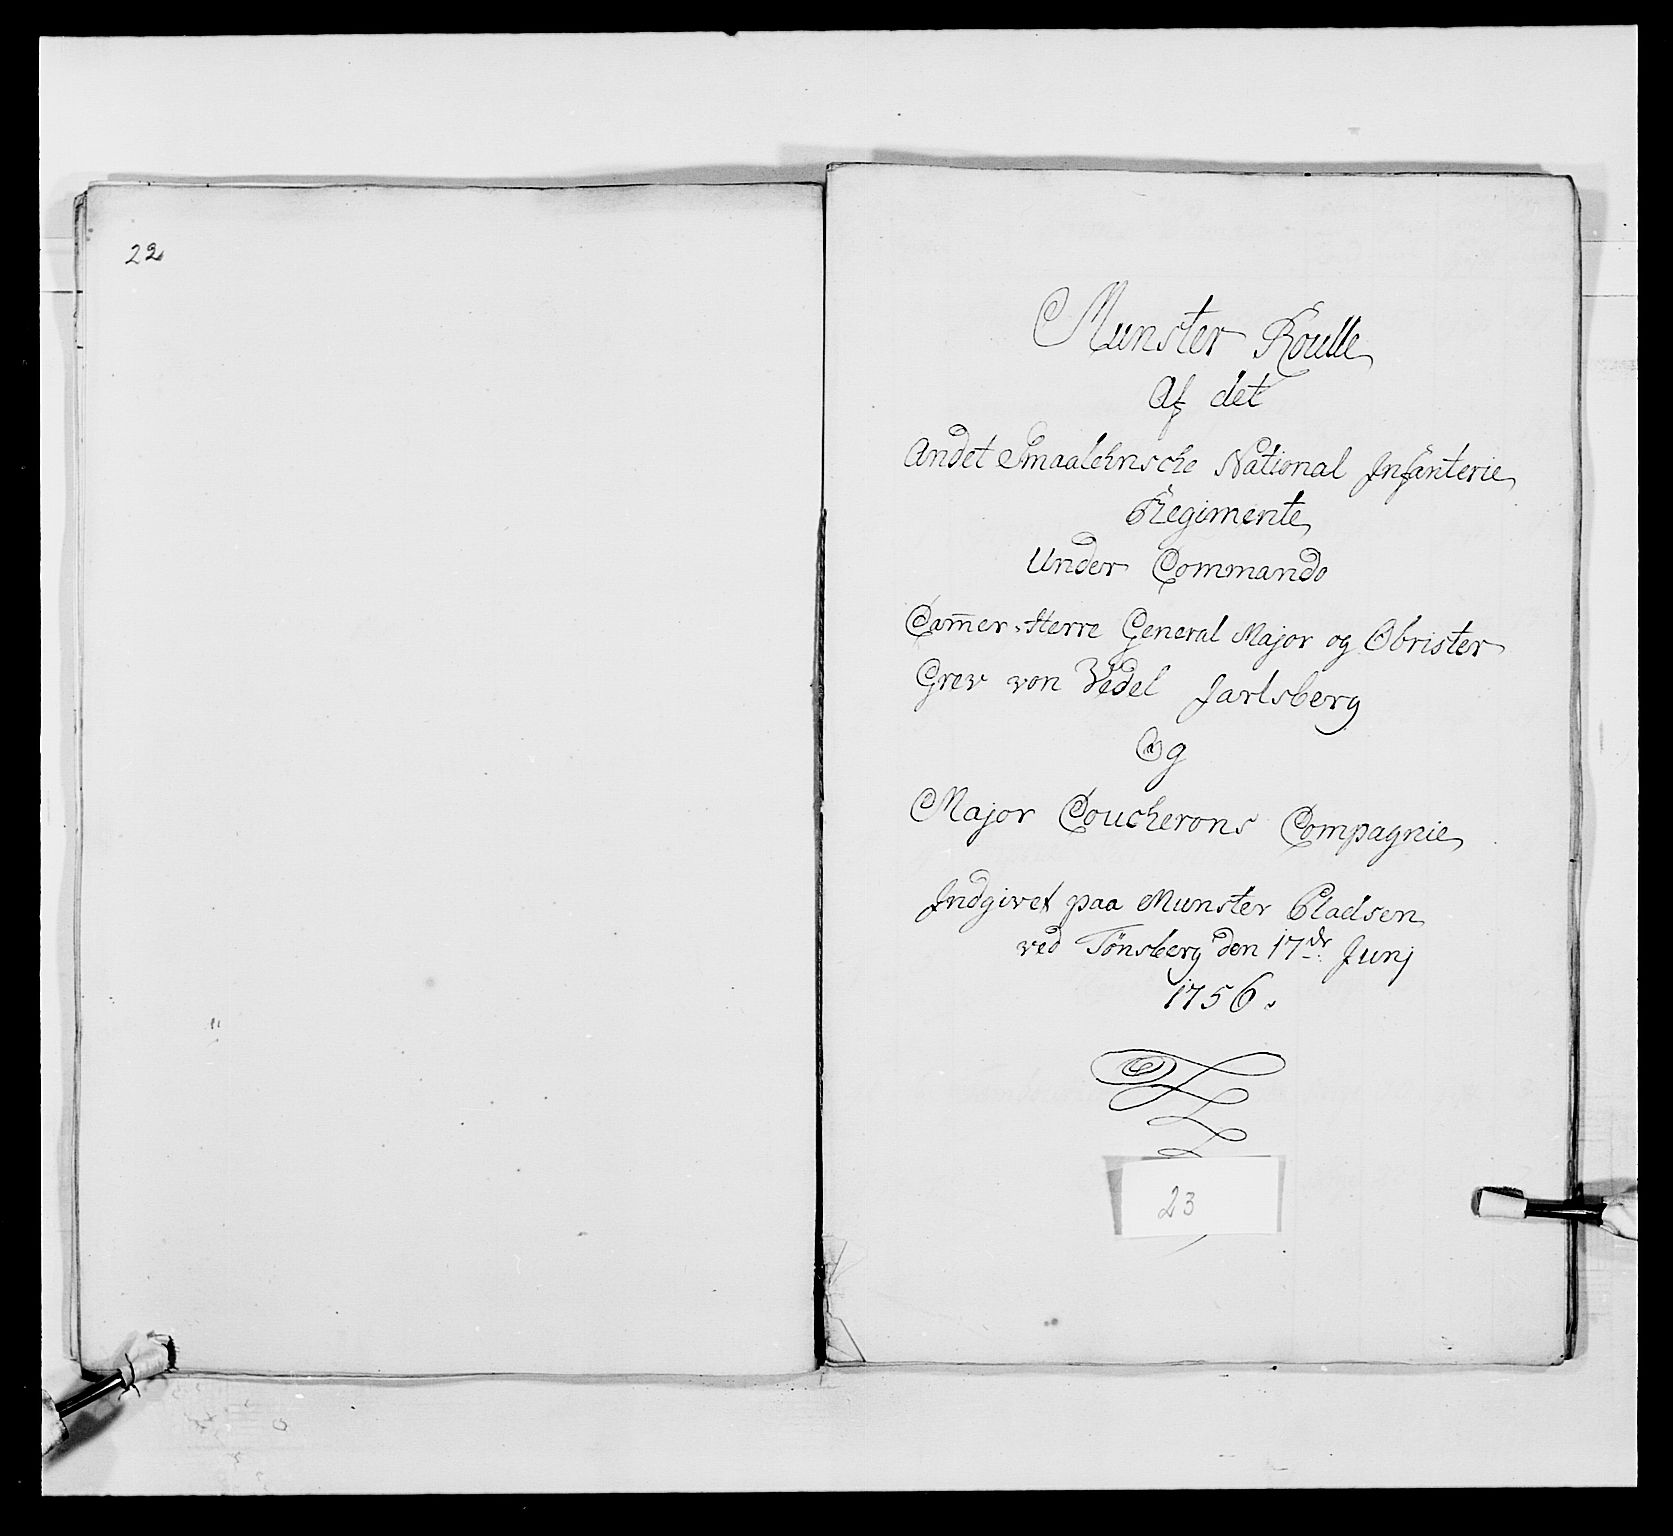 22
Munster Roulle
Af det
Andet Smaalehnsche National Infanterie
Regimente
Under Commando
Cam̄er-Herre General Major og Obrister
Grev von Vedel Jarlsberg
Og
Major Coucherons Compagnie
Indgivet paa Munster Pladsen
ved Tönsberg den 17de Junj
1756.
23